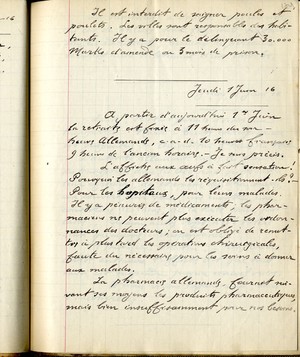 Il est interdit de saigner poules et
poulets. Les villes sont responsables des habi-
tants. Il y a pour le délinquant 30.000
Marks d'amende ou 3 mois de prison.
Jeudi 1 Juin 16
A partir d'aujourd'hui 1er Juin
la retraite est fixée à 11 heures du soir
heures Allemandes, c.-à-d. 10 heures françaises,
9 heures de l'ancien horaire. - Je suis précis.
L'affiche aux œufs a fait sensation.
Pourquoi les allemands les réquisitionnent-ils?
Pour les hôpitaux, pour leurs malades.
Il y a pénurie de médicaments, les phar-
maciens ne peuvent plus exécuter les ordon-
nances des docteurs; on est obligé de remet-
tre à plus tard les opérations chirurgicales,
faute du nécessaire pour les soins à donner
aux malades.
La pharmacie allemande fournit sui-
vant ses moyens les produits pharmaceutiques
mais bien insuffisamment pour nos besoins.